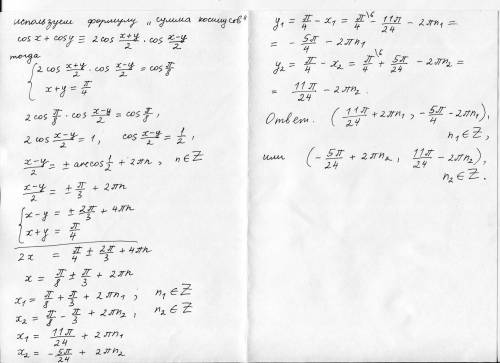 используем формулу „сумма косинусов"
cos x + cos y ≡ 2 cos (x+y)/2 · cos (x-y)/2
тогда
{ 2 cos (x+y)/2 · cos (x-y)/2 = cos π/8
x+y = π/4
2 cos π/8 · cos (x-y)/2 = cos π/8,
2 cos (x-y)/2 = 1, cos (x-y)/2 = 1/2,
(x-y)/2 = ± arccos 1/2 + 2πn, n∈Z
(x-y)/2 = ± π/3 + 2πn
{ x-y = ± 2π/3 + 4πn
x+y = π/4
2x = π/4 ± 2π/3 + 4πn
x = π/8 ± π/3 + 2πn
x₁ = π/8 + π/3 + 2πn₁, n₁∈Z
x₂ = π/8 - π/3 + 2πn₂, n₂∈Z
x₁ = 11π/24 + 2πn₁
x₂ = -5π/24 + 2πn₂
y₁ = π/4 - x₁ = π/4 \6 - 11π/24 - 2πn₁ =
= - 5π/4 - 2πn₁
y₂ = π/4 - x₂ = π/4 \6 + 5π/24 - 2πn₂ =
= 11π/24 - 2πn₂.
Ответ. (11π/24 + 2πn₁, -5π/4 - 2πn₁),
n₁∈Z,
или (-5π/24 + 2πn₂, 11π/24 - 2πn₂),
n₂∈Z.